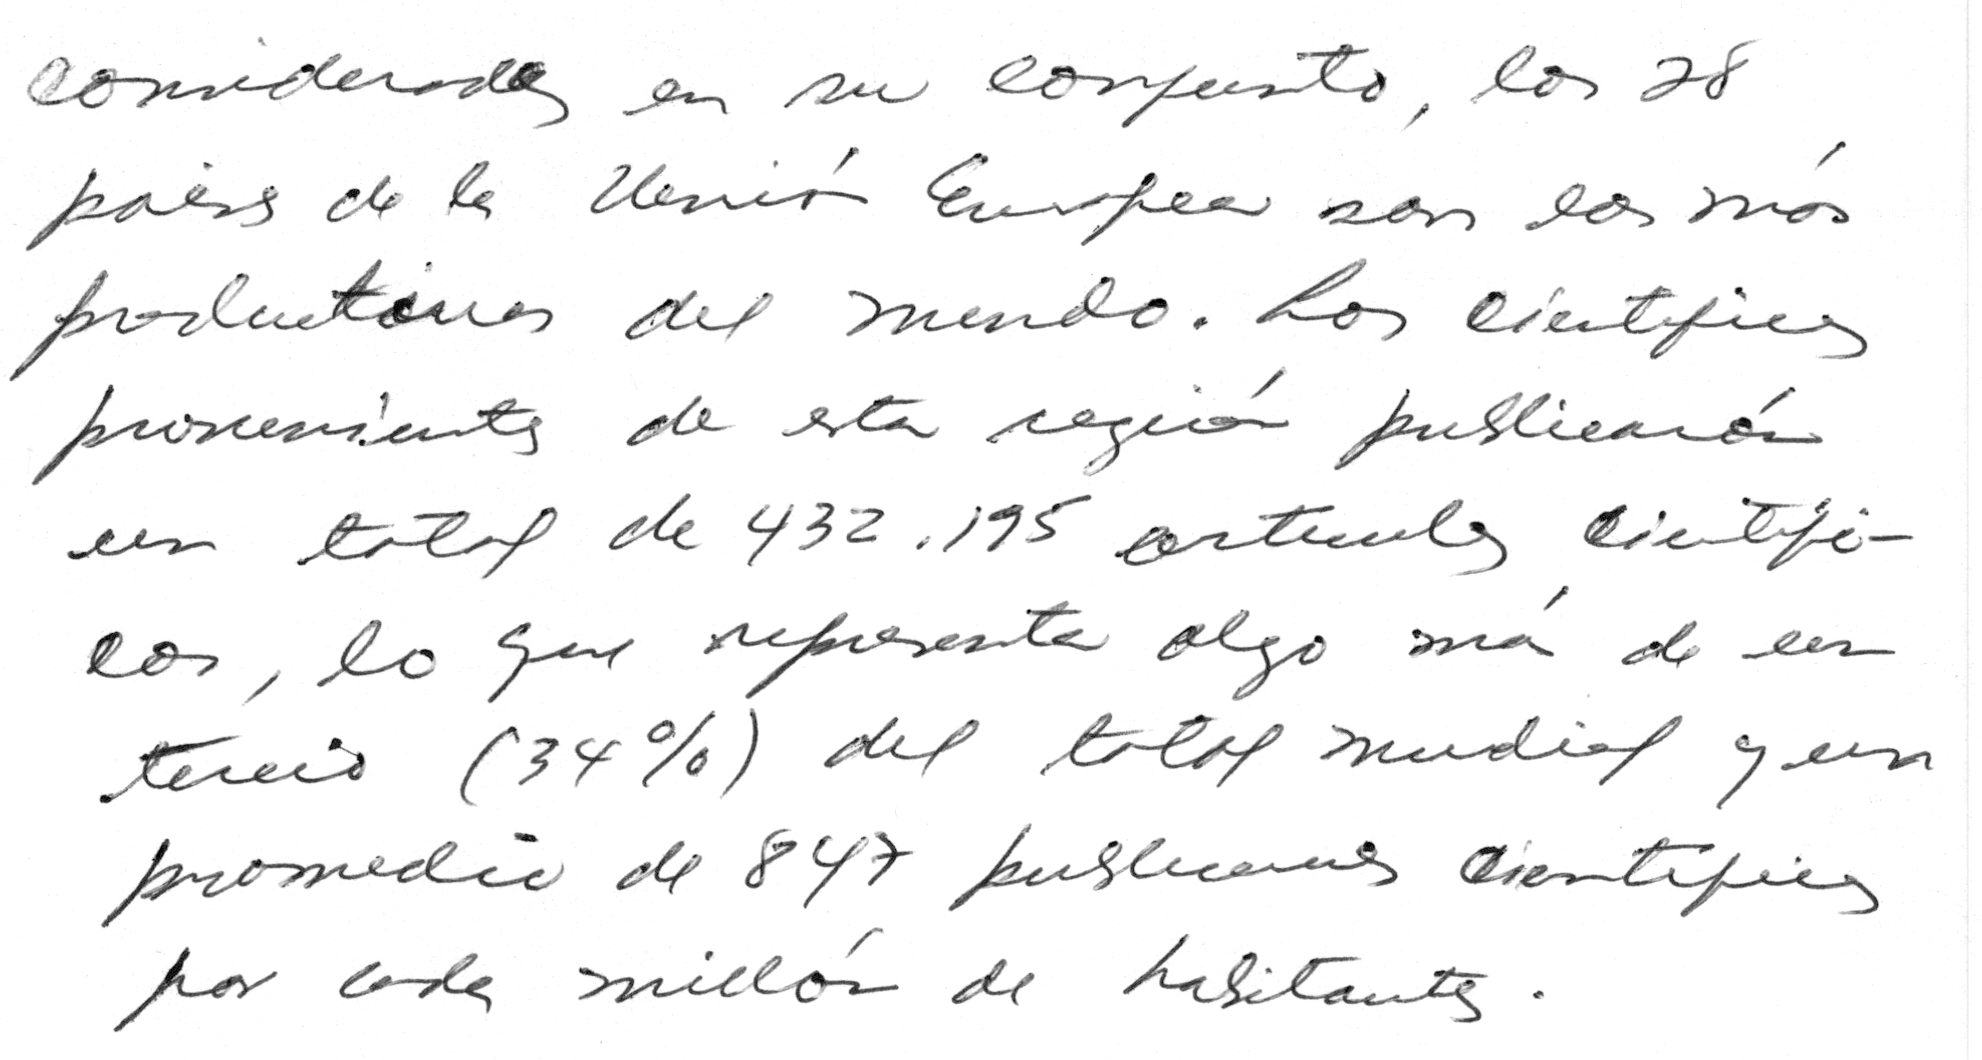 considerados en su conjunto, los 28
países de la Unión Europea son los más
productivos del mundo. Los científicos
provenientes de esta región publicarón
un total de 432.195 artículos científi-
cos, lo que representa algo más de un
tercio (34%) del total mudial y un
promedio de 847 publicaciones científicas
por cada millón de habitantes.